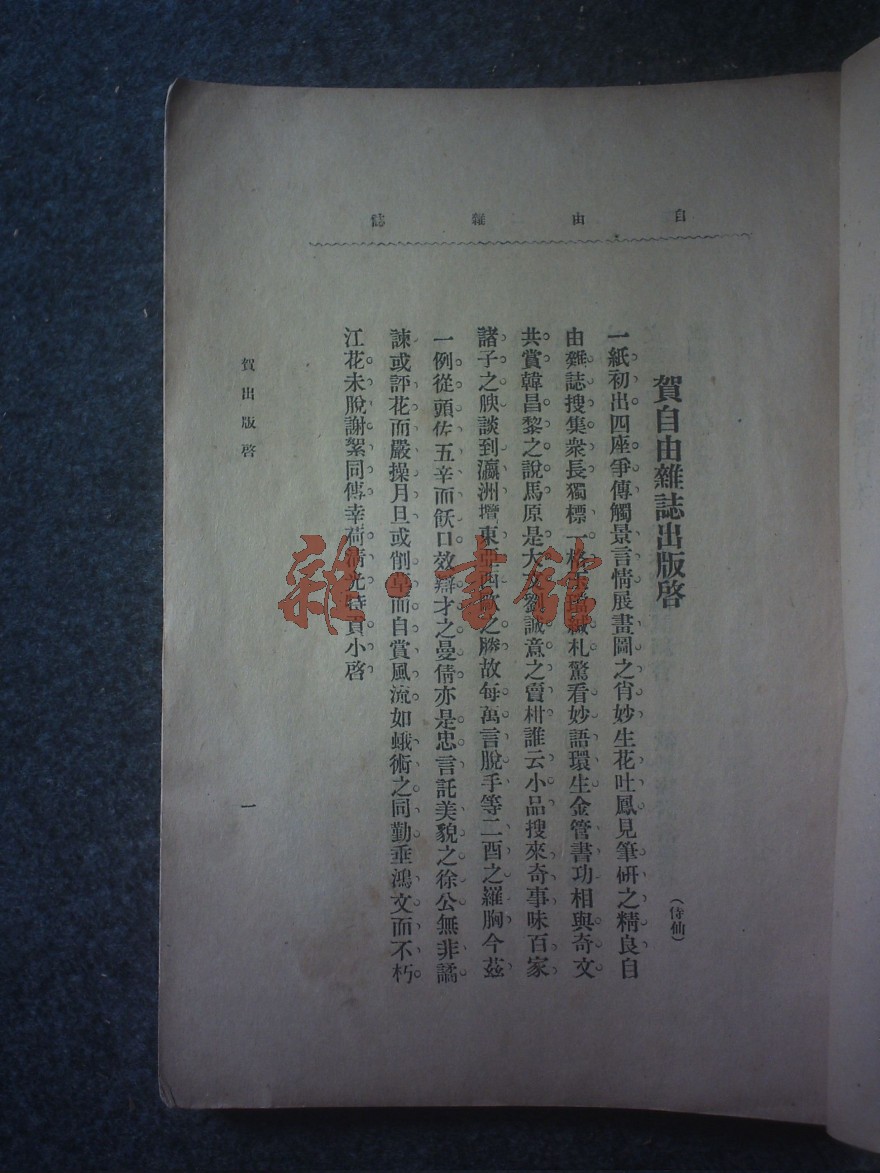 自由雜誌
賀自由雜誌出版啓
（侍仙）
一紙初出四座爭傳觸景言情展畫圖之肖妙生花吐鳳見筆硏之精良自
由雜誌搜集衆長獨標一格緘札驚看妙語環生金管書功相與奇文
共賞韓昌黎之說馬原是大文劉誠意之賣柑誰云小品搜來奇事味百家
諸子之腴談到瀛洲攬東亞西歐之勝故每萬言脫手等二酉之羅胸今茲
一例從頭佐五辛而飫口效辯才之曼倩亦是忠言託美貌之徐公無非譎
諫或評花而嚴操月旦或削草而自賞風流如蛾術之同勤垂鴻文而不朽
江花未脫謝絮同傳幸荷淸光特貢小啓
賀出版啓
一
雜·書館